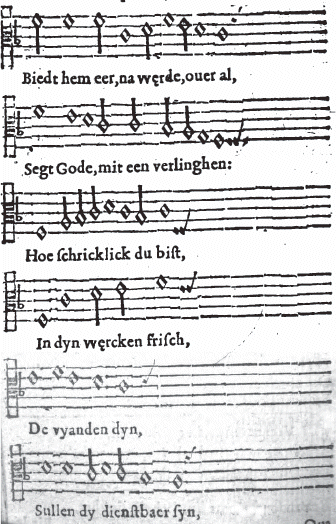 Biedt hem eer, na węrde, ouer al,
Segt Gode, mit een verlinghen:
Hoe ſchricklick du biſt,
In dyn węrcken friſch,
De vyanden dyn,
Sullen dy dienſtbaer ſyn,